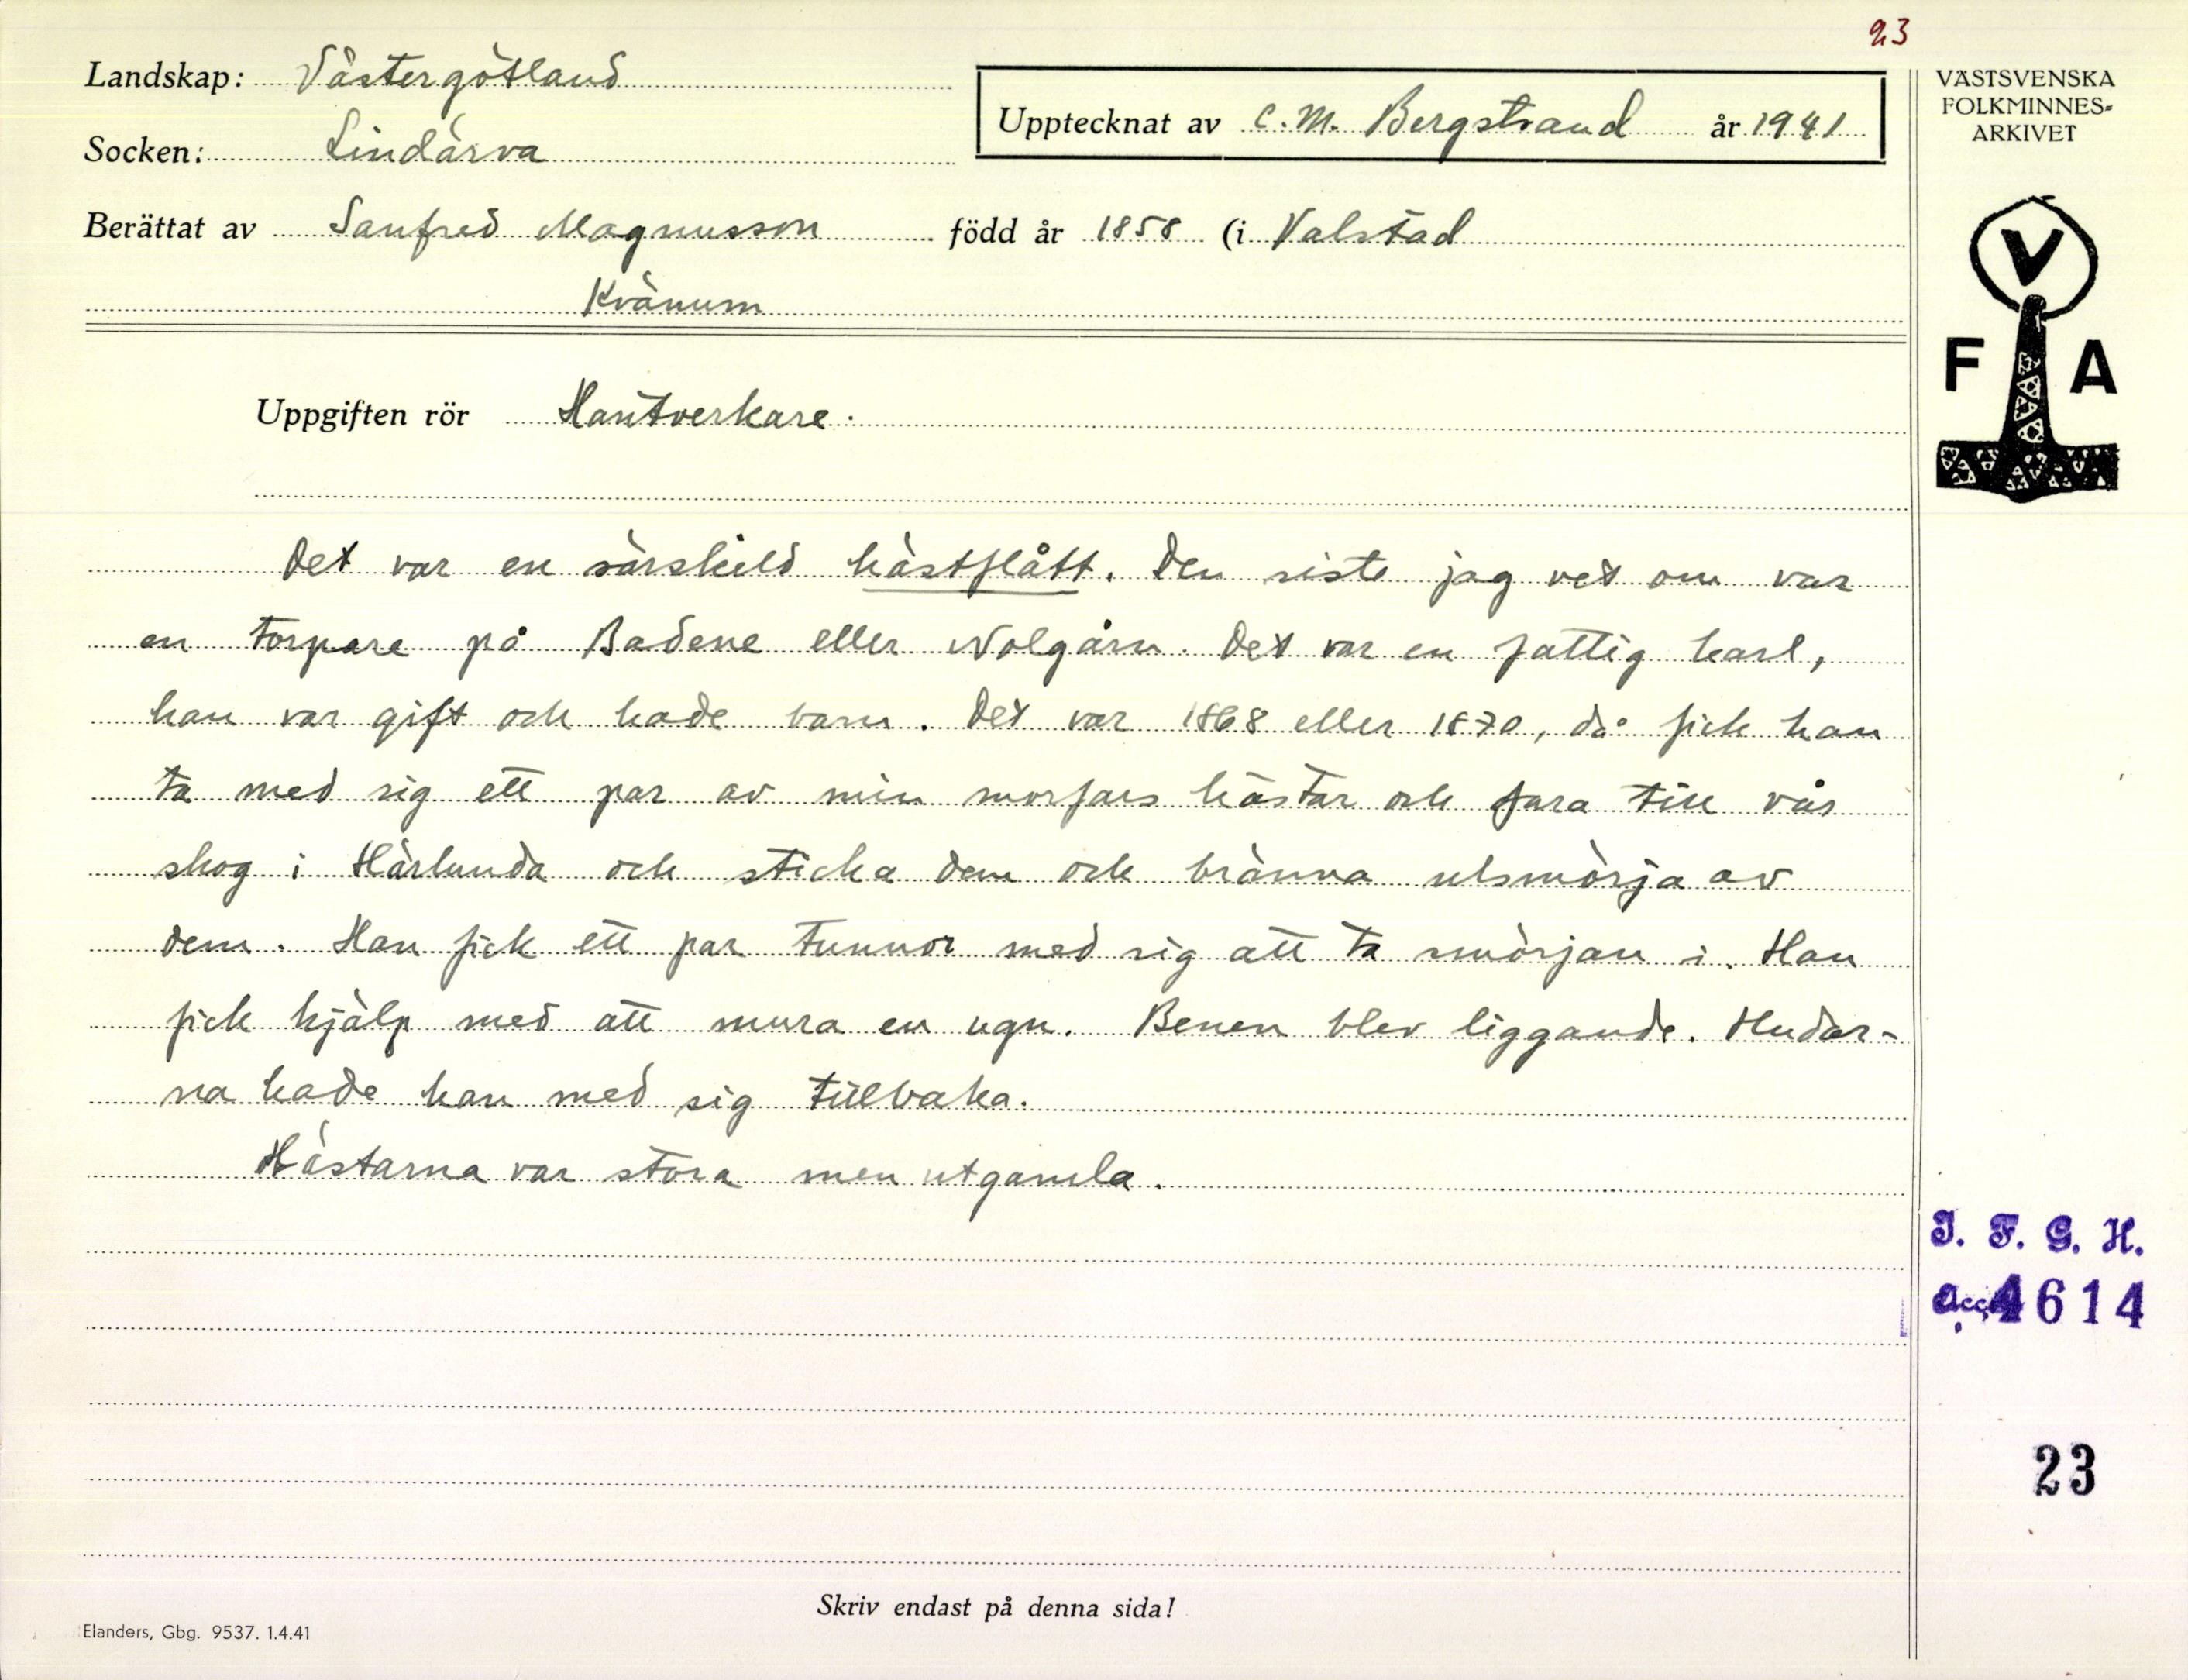 23
Landskap: Västergötland
Socken: Lindärva
Upptecknat av C. M. Bergstrand år 1941
Berättat av Sanfrid Magnusson född år 1858 (i Valstad
Kvänum
VÄSTSVENSKA
FOLKMINNES-
ARKIVET
V
F A
Uppgiften rör Hantverkare.
Det var en särskild hästflått. Den siste jag vet om var
en torpare på Badene eller Nolgårn. Det var en fattig karl,
han var gift och hade barn. Det var 1868 eller 1870, då fick han
ta med sig ett par av min morfars hästar och fara till vår
skog i Härlunda och sticka dem och bränna ulsmörja av
dem. Han fick ett par tunnor med sig att ta smörjan i. Han
fick hjälp med att mura en ugn. Benen blev liggande. Hudar-
na hade han med sig tillbaka.
Hästarna var stora men utgamla.
I. F. G. H.
acc. 4614
23
Skriv endast på denna sida!
Elanders, Gbg. 9537. 1.4.41